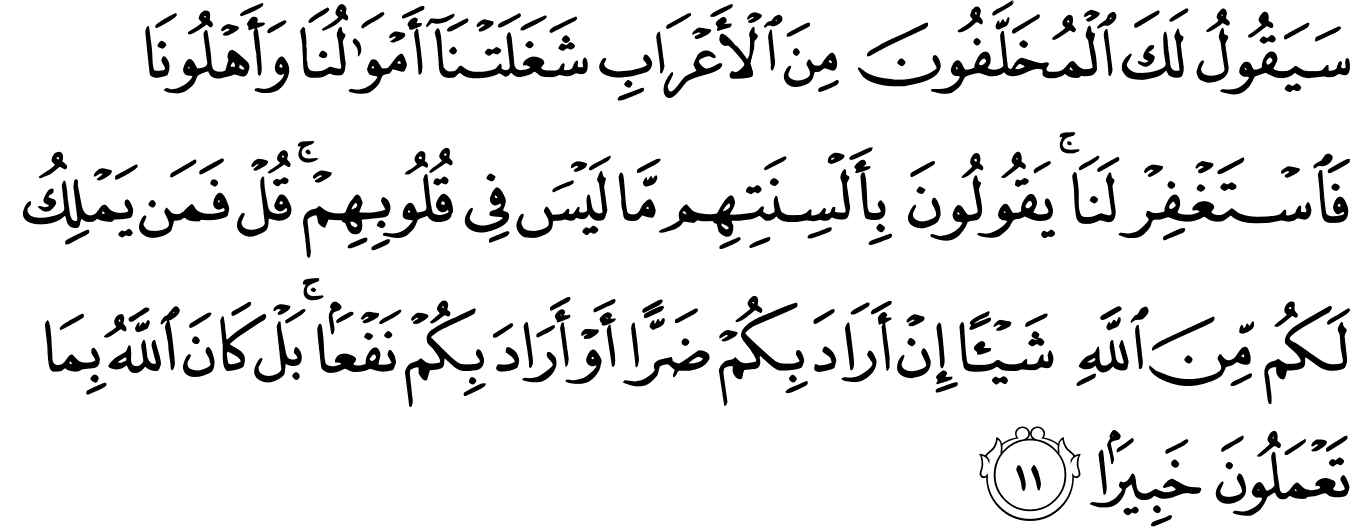 سَيَقُولُ لَكَ ٱلْمُخَلَّفُونَ مِنَ ٱلْأَعْرَابِ شَغَلَتْنَآ أَمْوَٰلُنَا وَأَهْلُونَا
فَٱسْتَغْفِرْ لَنَا ۚ يَقُولُونَ بِأَلْسِنَتِهِم مَّا لَيْسَ فِى قُلُوبِهِمْ ۚ قُلْ فَمَن يَمْلِكُ
لَكُم مِّنَ ٱللَّهِ شَيْـًٔا إِنْ أَرَادَ بِكُمْ ضَرًّا أَوْ أَرَادَ بِكُمْ نَفْعًۢا ۚ بَلْ كَانَ ٱللَّهُ بِمَا
تَعْمَلُونَ خَبِيرًۢا ١١